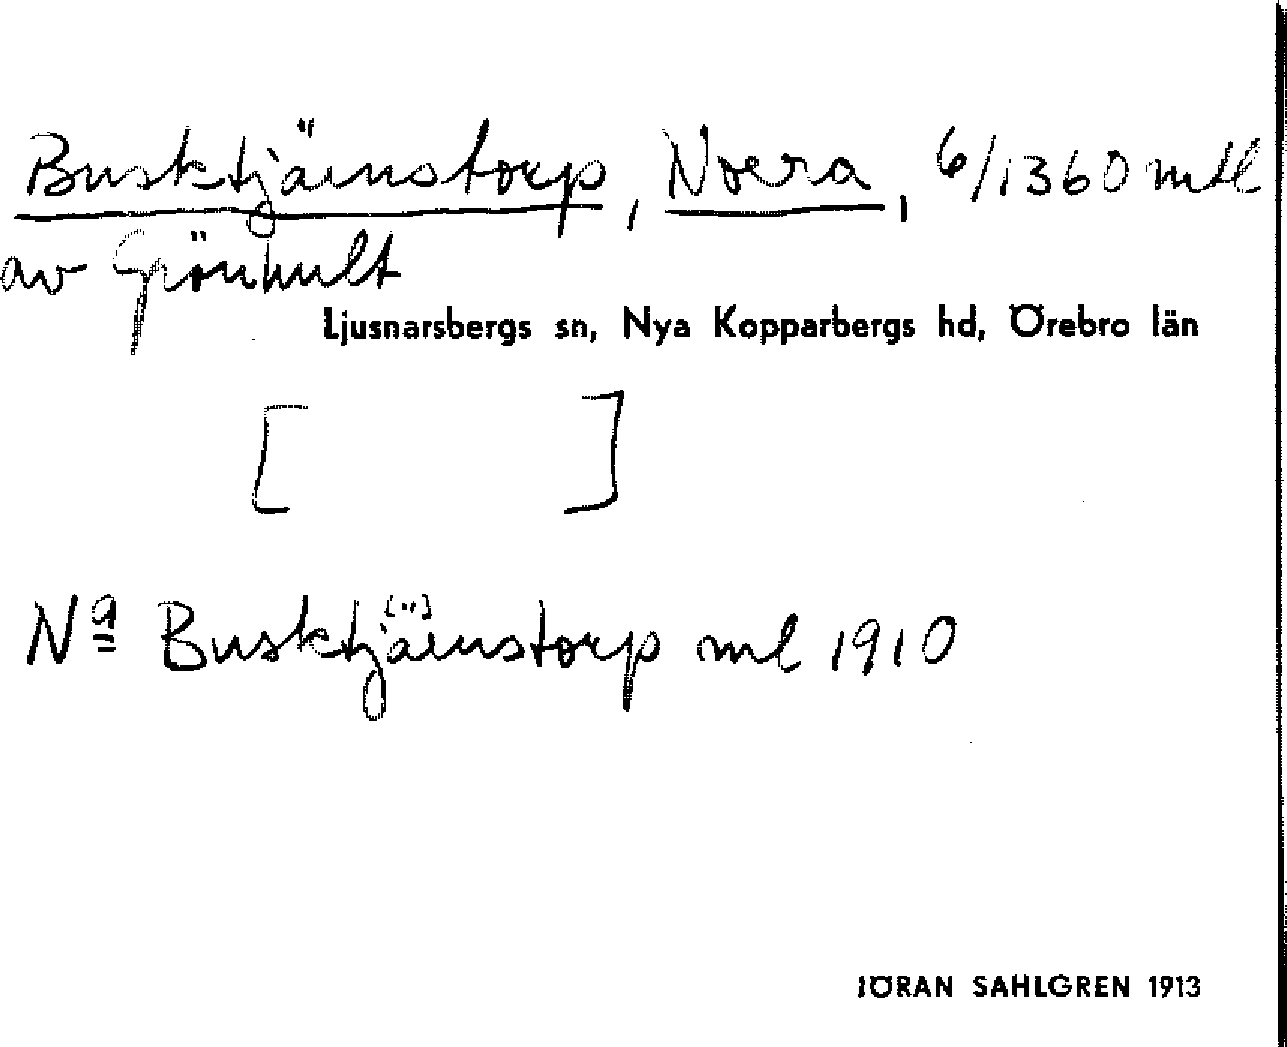 Busktjärnstorp, Norra, 6/1360 mtl
av Grönhult
Ljusnarsbergs sn, Nya Kopparbergs hd, Örebro län
[ ]
Na Busktj[ä]rnstorp ml 1910
JÖRAN SAHLGREN 1913